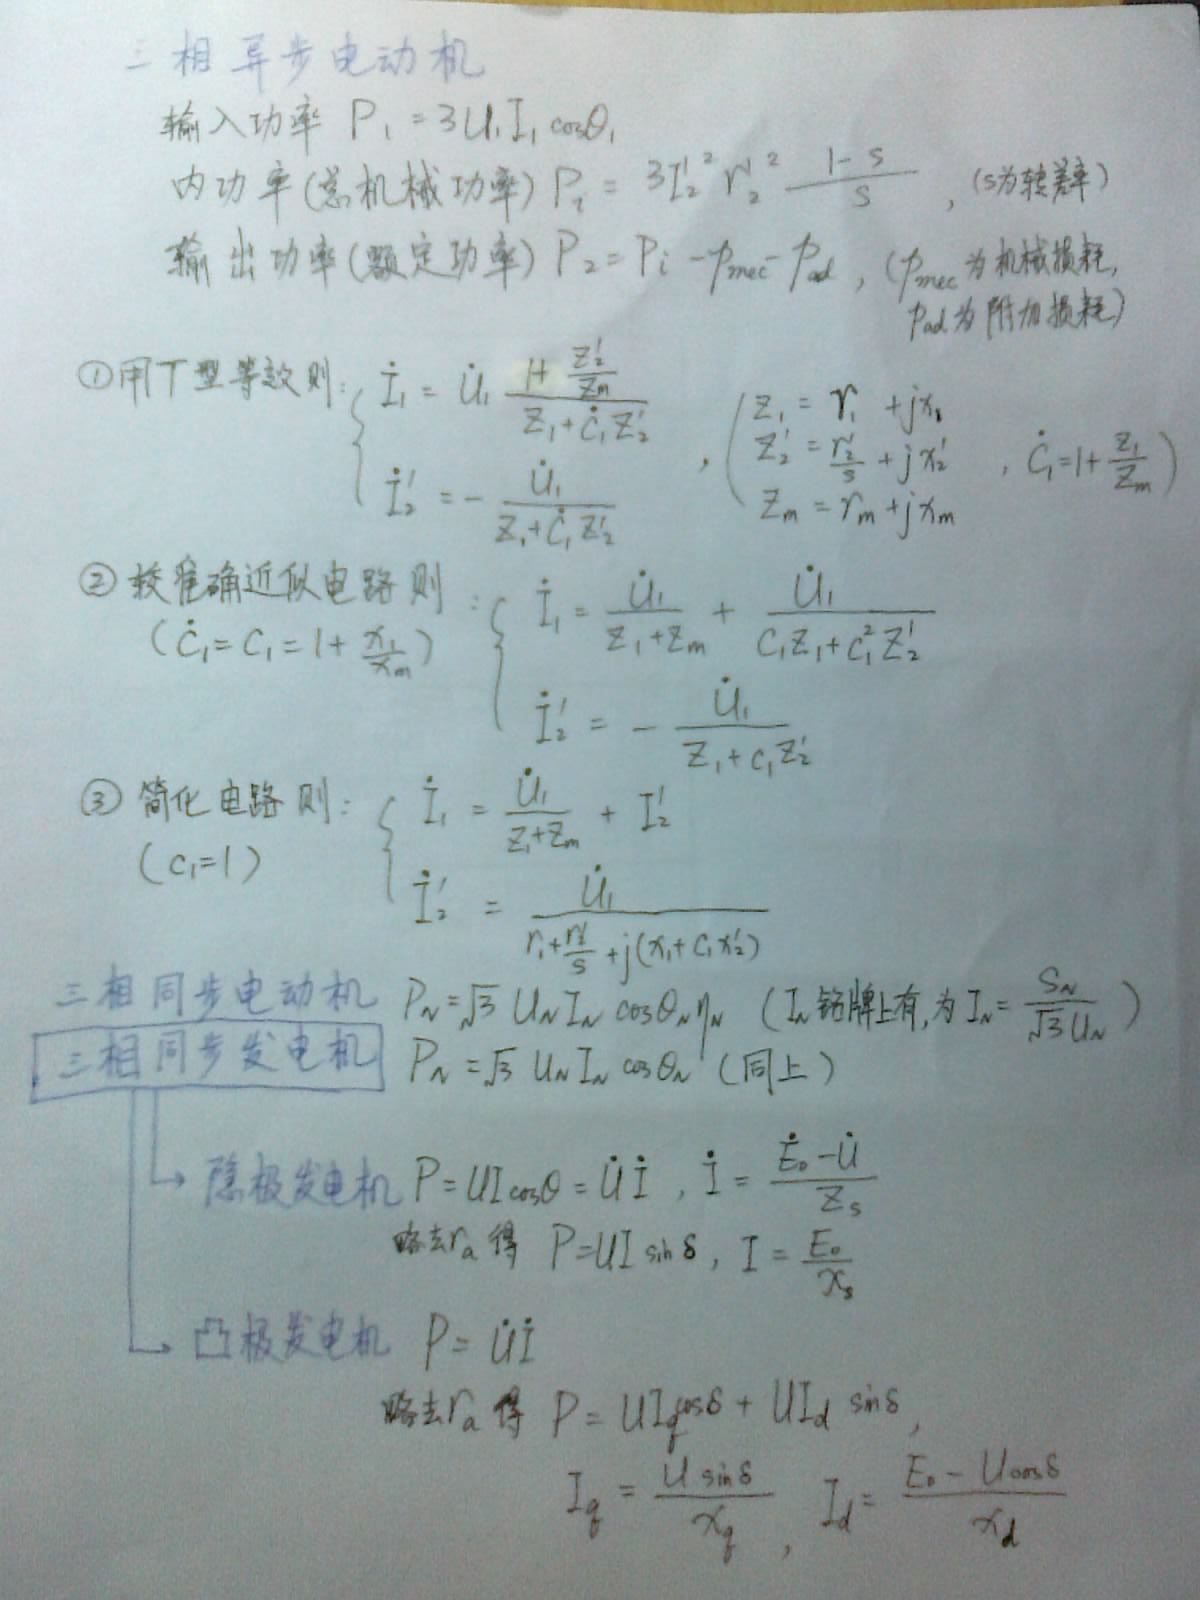 三相异步电动机
输入功率 P₁ = 3U₁I₁ cosθ₁
内功率(总机械功率) Pᵢ = 3I₂'² r₂'² (1-s)/s , (s为转差率)
输出功率(额定功率) P₂ = Pᵢ - p_mec - p_ad , (p_mec 为机械损耗,
p_ad 为附加损耗)
①用T型等效则: İ₁ = U̇₁ (1+ Z₂'/Zm)/(Z₁+Ċ₁Z₂')
İ₂' = - U̇₁/(Z₁+Ċ₁Z₂') , (Z₁ = r₁ + jx₁
Z₂' = r₂'/s + jx₂' , Ċ₁=1+ Z₁/Zm)
Zm = rm + jxm
②较准确近似电路则: İ₁ = U̇₁/(Z₁+Zm) + U̇₁/(C₁Z₁+C₁²Z₂')
(Ċ₁= C₁ = 1+ x₁/xm)
İ₂' = - U̇₁/(Z₁+C₁Z₂')
③简化电路则: İ₁ = U̇₁/(Z₁+Zm) + I₂'
(C₁=1)
İ₂' = U̇₁/(r₁+ r₂'/s + j(x₁+C₁x₂'))
三相同步电动机 P_N = √3 U_N I_N cosθ_N η_N (I_N 铭牌上有,为 I_N = S_N/(√3 U_N))
三相同步发电机 P_N = √3 U_N I_N cosθ_N (同上)
隐极发电机 P = UI cosθ = U̇İ , İ = (Ė₀-U̇)/Z_s
略去r_a 得 P=UI sinδ , I = E₀/x_s
凸极发电机 P = U̇İ
略去r_a 得 P = UI_q cosδ + UI_d sinδ ,
I_q = U sinδ/x_q , I_d = (E₀ - U cosδ)/x_d